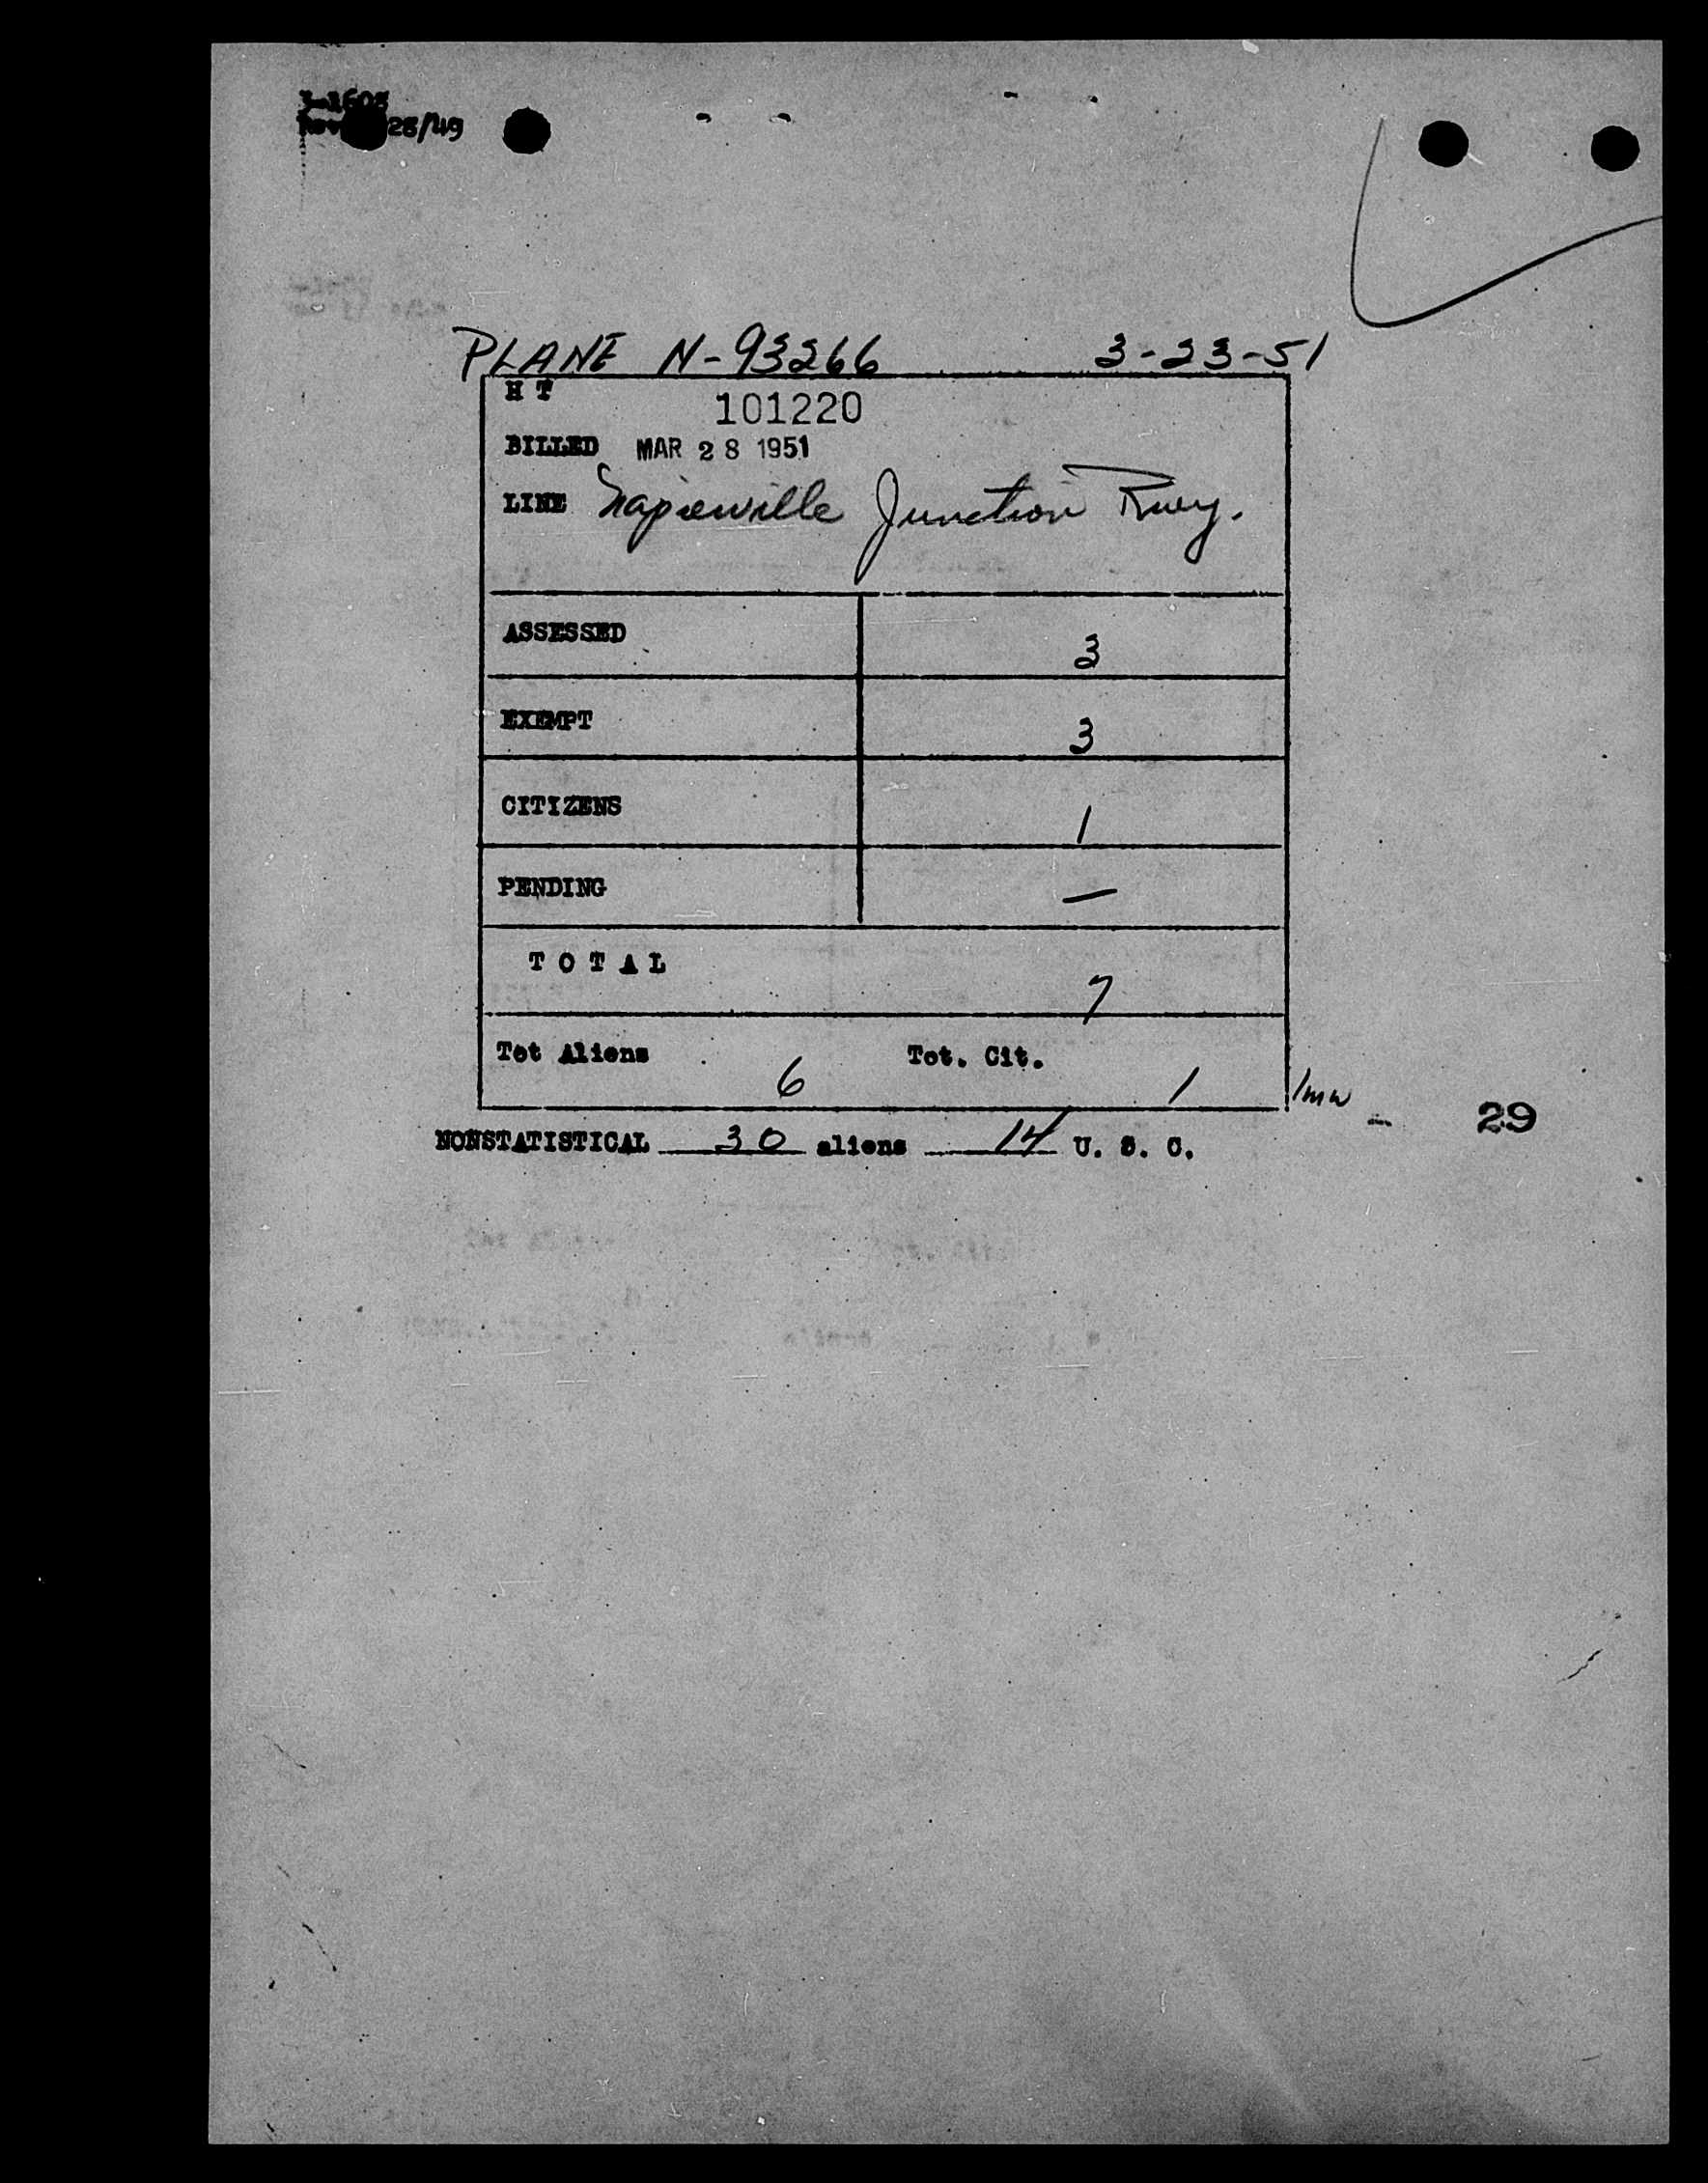 3-1603
28/49
PLANE N-93266 3-23-51
H T
101220
BILLED MAR 28 1951
LINE Napierville Junction Rwy.
ASSESSED 3
EXEMPT 3
CITIZENS 1
PENDING —
TOTAL 7
Tot Aliens 6 Tot. Cit. 1
/mw
29
NONSTATISTICAL 30 aliens 14 U. S. C.